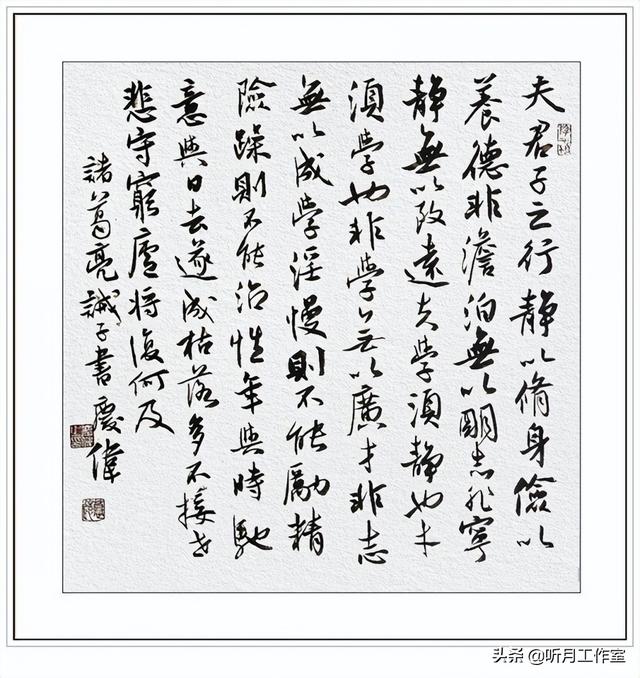 夫君子之行静以脩身儉以
養德非澹泊無以明志非寧
静無以致遠夫學須静也才
須學也非學无以廣才非志
無以成學淫慢則不能勵精
險躁則不能治性年與時馳
意與日去遂成枯落多不接世
悲守窮廬将復何及
諸葛亮誡子書慶偉
头条 @听月工作室